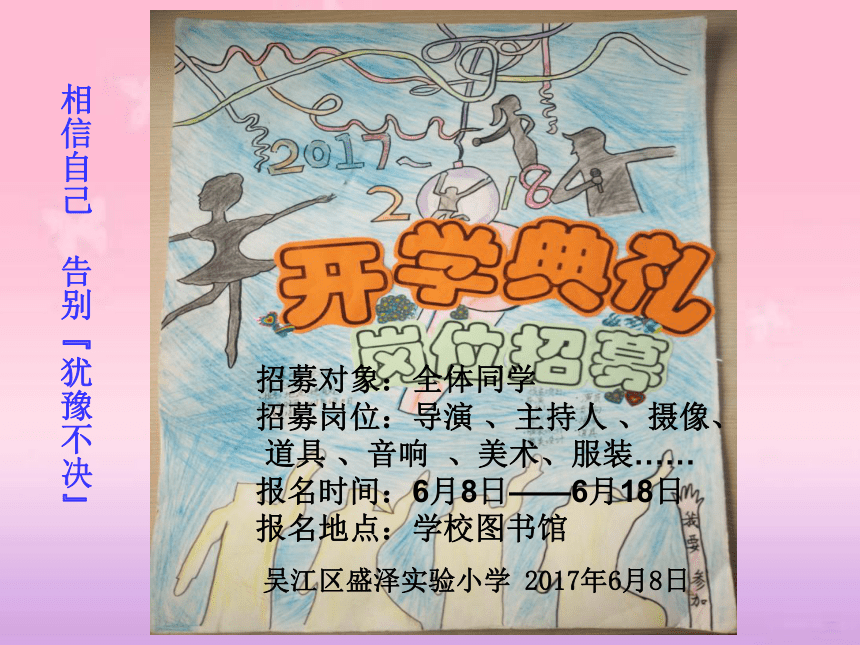 相信自己 告别『犹豫不决』
2017~
2018
开学典礼
岗位招募
招募对象：全体同学
招募岗位：导演 、主持人 、摄像、
道具 、音响 、美术、服装……
报名时间：6月8日——6月18日
报名地点：学校图书馆
我要参加
吴江区盛泽实验小学 2017年6月8日